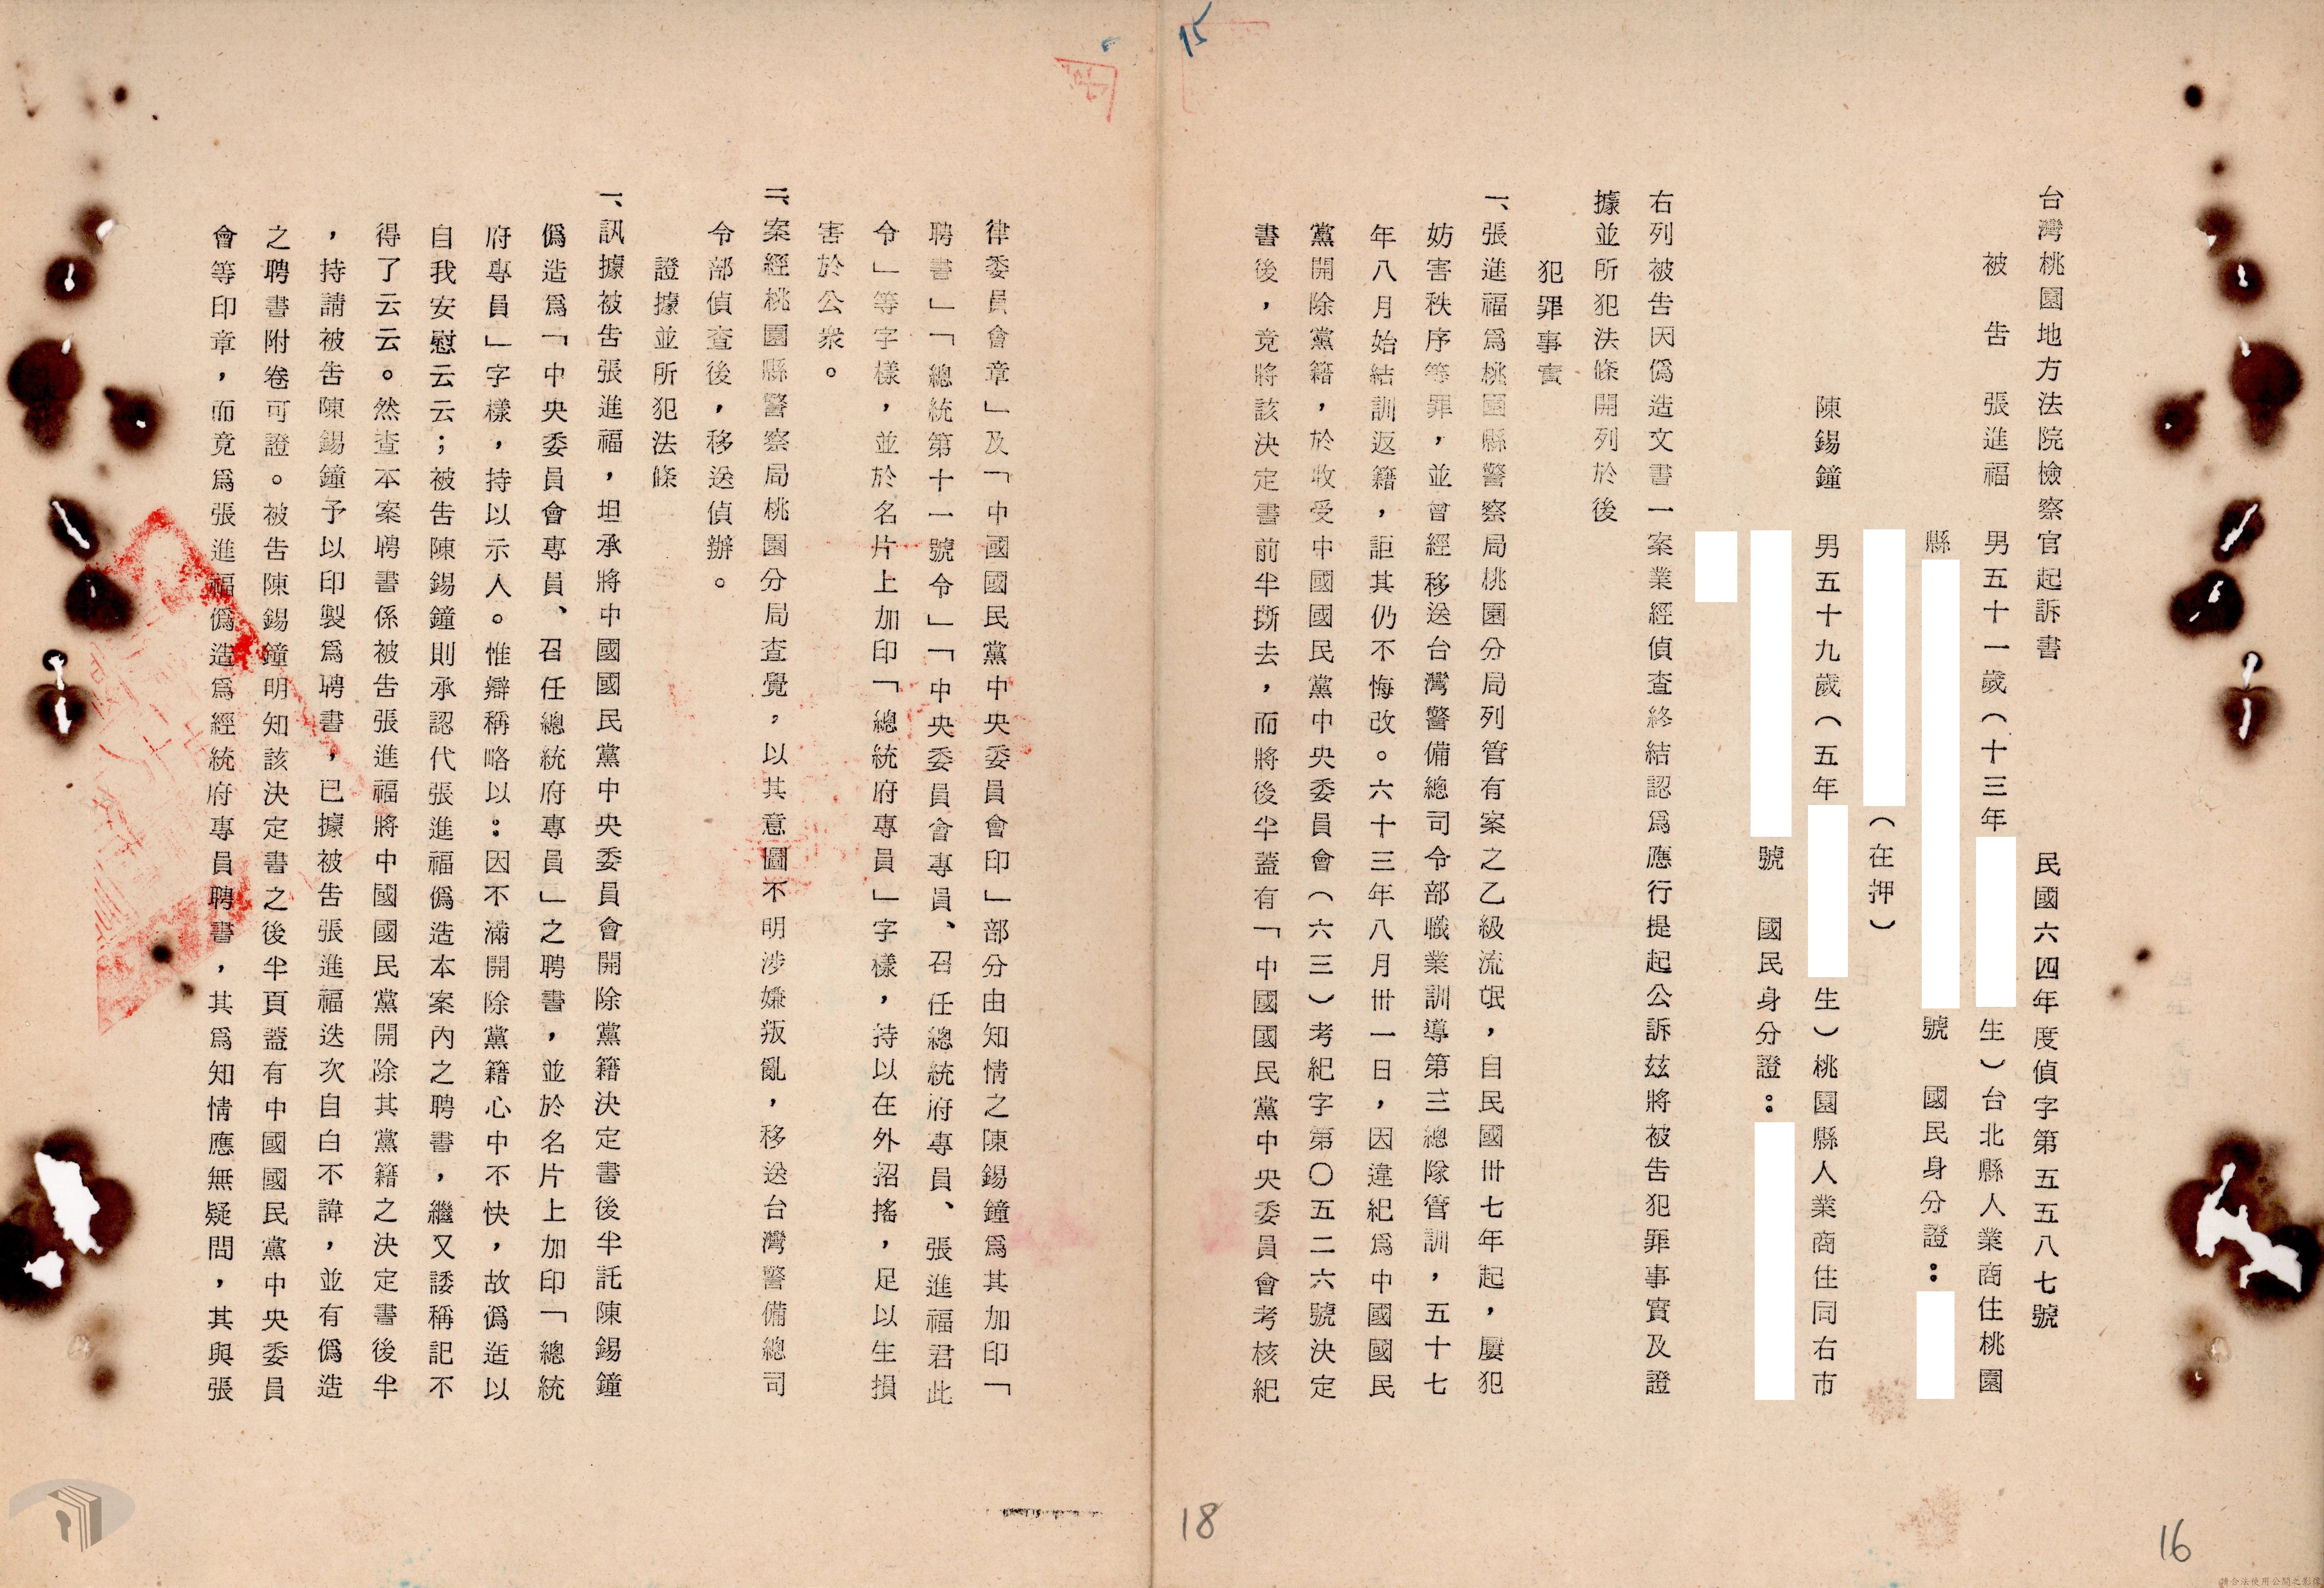 台灣桃園地方法院檢察官起訴書
民國六四年度偵字第五五八七號
被告 張進福 男五十一歲（十三年 生）台北縣人業商住桃園
縣 號 國民身分證：
（在押）
陳錫鐘 男五十九歲（五年 生）桃園縣人業商住同右市
號 國民身分證：
右列被告因僞造文書一案業經偵查終結認爲應行提起公訴茲將被告犯罪事實及證
據並所犯法條開列於後
犯罪事實
一、張進福爲桃園縣警察局桃園分局列管有案之乙級流氓，自民國卅七年起，屢犯
妨害秩序等罪，並曾經移送台灣警備總司令部職業訓導第三總隊管訓，五十七
年八月始結訓返籍，詎其仍不悔改。六十三年八月卅一日，因違紀爲中國國民
黨開除黨籍，於收受中國國民黨中央委員會（六三）考紀字第〇五二六號決定
書後，竟將該決定書前半撕去，而將後半蓋有「中國國民黨中央委員會考核紀
律委員會章」及「中國國民黨中央委員會印」部分由知情之陳錫鐘爲其加印「
聘書」「總統第十一號令」「中央委員會專員、召任總統府專員、張進福君此
令」等字樣，並於名片上加印「總統府專員」字樣，持以在外招搖，足以生損
害於公衆。
二、案經桃園縣警察局桃園分局查覺，以其意圖不明涉嫌叛亂，移送台灣警備總司
令部偵查後，移送偵辦。
證據並所犯法條
一、訊據被告張進福，坦承將中國國民黨中央委員會開除黨籍決定書後半託陳錫鐘
僞造爲「中央委員會專員、召任總統府專員」之聘書，並於名片上加印「總統
府專員」字樣，持以示人。惟辯稱略以：因不滿開除黨籍心中不快，故僞造以
自我安慰云云；被告陳錫鐘則承認代張進福僞造本案內之聘書，繼又諉稱記不
得了云云。然查本案聘書係被告張進福將中國國民黨開除其黨籍之決定書後半
，持請被告陳錫鐘予以印製爲聘書，已據被告張進福迭次自白不諱，並有僞造
之聘書附卷可證。被告陳錫鐘明知該決定書之後半頁蓋有中國國民黨中央委員
會等印章，而竟爲張進福僞造爲經統府專員聘書，其爲知情應無疑問，其與張
15
18
16
請合法使用公開之影像